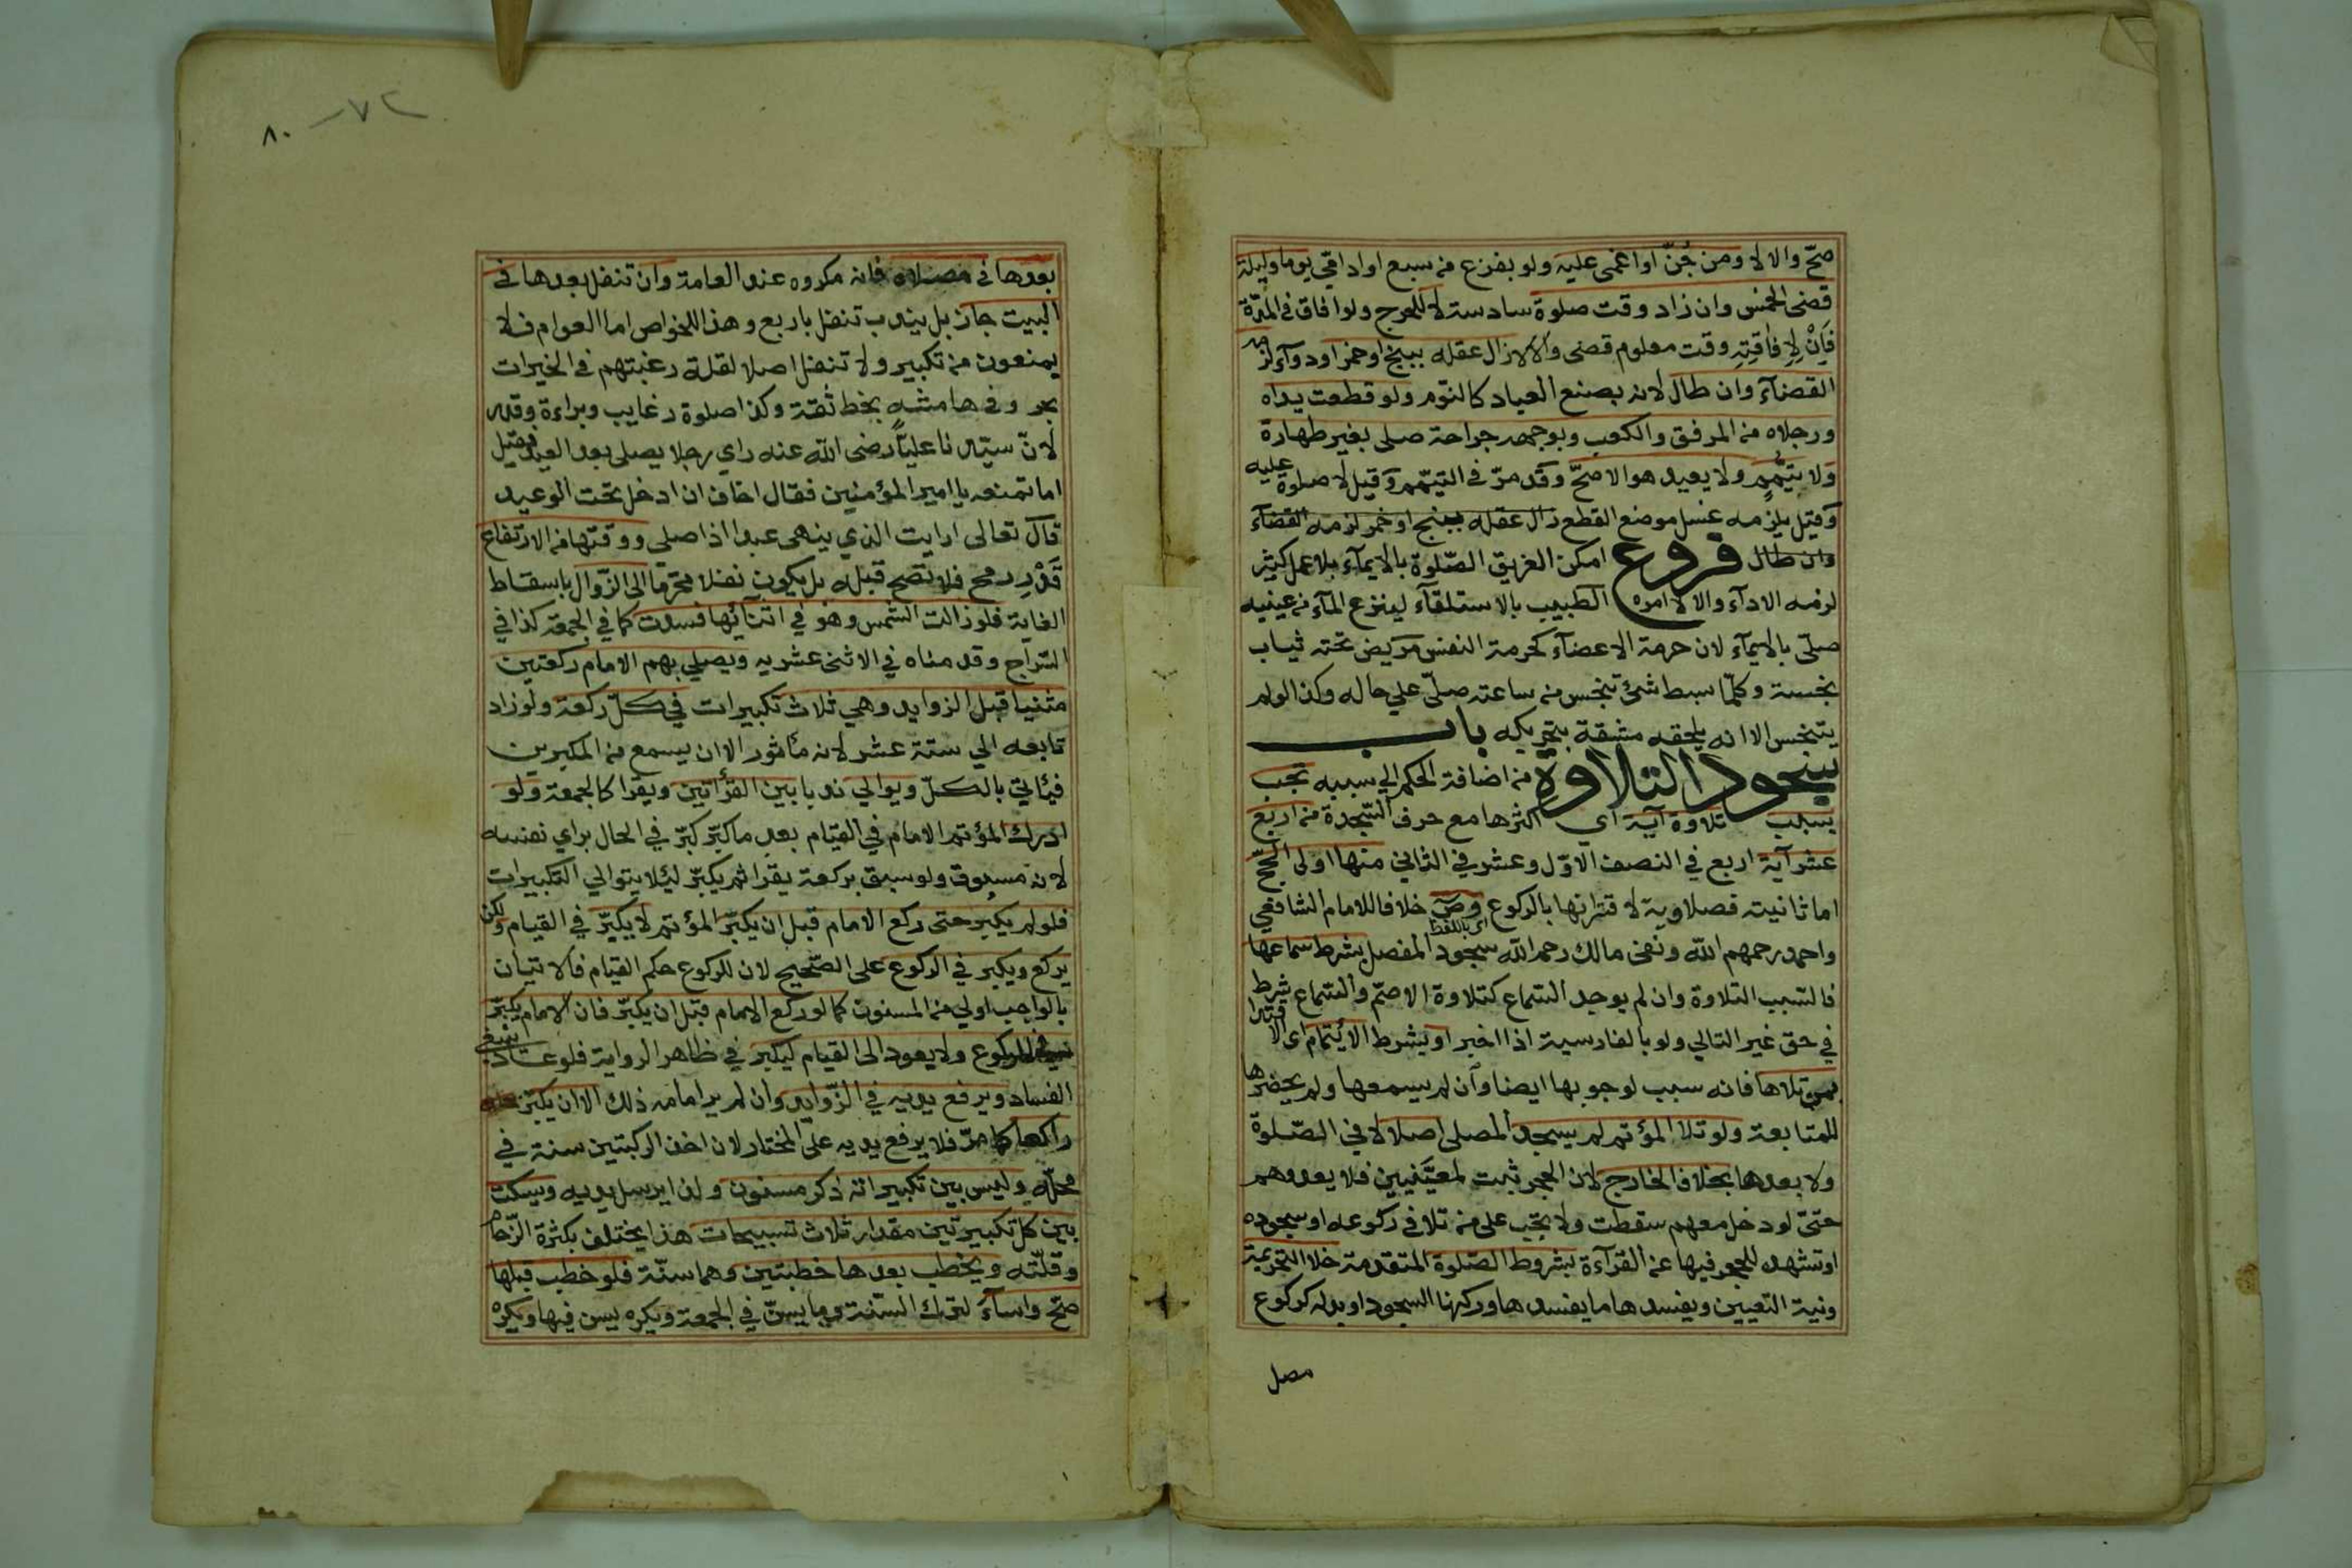 صحّ والا لا ومن جُنّ او اغمى عليه ولو بفزع من سبع او ادمى يوما وليلة
قضى الخمس وان زاد وقت صلوة سادسة لا للحرج ولو افاق في المدّة
فَاِنْ لِاِفاقتِهِ وقت معلوم قضى والا لا زال عقله ببنج او خمر او دوآء لزمه
القضآء وان طال لانه بصنع العباد كالنوم ولو قطعت يداه
ورجلاه من المرفق والكعب وبوجهه جراحة صلى بغير طهارة
ولا تيمّم ولا يعيد هو الاصحّ وقد مرّ في التيمّم وقيل لا صلوة عليه
وقيل يلزمه غسل موضع القطع زال عقله ببنج او خمر لزمه القضآء
وان طال فروع امكن الغريق الصّلوة بالايمآء بلا عمل كثير
لزمه الادآء والا لا امره الطبيب بالاستلقآء لينزع المآء من عينيه
صلّى بالايمآء لان حرمة الاعضآء كحرمة النفس مريض تحته ثياب
نجسة وكلّما بسط شئ تنجس من ساعته صلّى علي حاله وكذا لو لم
يتنجس الا انه يلحقه مشقة بتحريكه باب
سجود التلاوة من اضافة الحكم الي سببه تجب
بسبب تلاوة آية اي اكثرها مع حرف السّجدة من اربع
عشر آية اربع في النصف الاوّل وعشر في الثاني منها اولى الحجّ
اما ثانيته فصلاوية لاقترانها بالركوع وصۤ خلافا للامام الشافعي
واحمد رحمهم الله ونفى مالك رحمه الله سجود المفصل بشرط سماعها
اي باللفظ
فالسبب التلاوة وان لم يوجد السّماع كتلاوة الاصمّ والسّماع شرط
في حق غير التالي ولو بالفارسية اذا اخبر او بشرط الايتمام اى الاقتدا
بمن تلاها فانه سبب لوجوبها ايضا وان لم يسمعها ولم يحضرها
للمتابعة ولو تلا المؤتم لم يسجد المصلى اصلا لا في الصّلوة
ولا بعدها بخلاف الخارج لان الحجر ثبت لمعيّنين فلا يعدوهم
حتىّ لو دخل معهم سقطت ولا تجب على من تلا في ركوعه او سجوده
او تشهده للحجر فيها عن القرآءة بشروط الصّلوة المتقدمة خلا التحريمة
ونية التعيين ويفسدها ما يفسدها وركنها السجود او بدله كركوع
مصل
٨٠ ٧٢
بعدها في مصلاه فانه مكروه عند العامة وان تنفل بعدها في
البيت جاز بل يندب تنفل باربع وهذا للخواص اما العوام فلا
يمنعون من تكبير ولا تنفل اصلا لقلة رغبتهم في الخيرات
بحر وفي هامشه بخط ثقة وكذا صلوة رغايب وبراءة وقدر
لانّ سيّدنا عليّاً رضى الله عنه راي رجلا يصلى بعد العيد فقيل
اما تمنعه يا امير المؤمنين فقال اخاف ان ادخل تحت الوعيد
قال تعالى ارايت الذي ينهى عبدا اذا صلى ووقتها من الارتفاع
قَدْرِ رمح فلا تصح قبله بل يكون نفلا محرّماً الى الزّوال باسقاط
الغاية فلو زالت الشّمس وهو في اثنآئها فسدت كما في الجمعة كذا في
السّراج وقدمناه في الاثنى عشريه ويصلي بهم الامام ركعتين
مثنيا قبل الزوايد وهي ثلاث تكبيرات في كلّ ركعة ولو زاد
تابعه الي ستة عشر لانه مأثور الا ان يسمع من المكبرين
فيأتي بالكلّ ويوالي ندبا بين القرأتين ويقرا كالجمعة ولو
ادرك المؤتم الامام في القيام بعد ما كبّر كبّر في الحال براي نفسه
لانه مسبوق ولو سبق بركعة يقرا ثم يكبّر ليئلا يتوالي التكبيرات
فلو لم يكبر حتى ركع الامام قبل ان يكبّر المؤتم لا يكبّر في القيام ولكن
يركع ويكبر في الركوع على الصّحيح لان للركوع حكم القيام فالاتيان
بالواجب اولي من المسنون كما لو ركع الامام قبل ان يكبّر فان الامام يكبّر
في الركوع ولا يعود الى القيام ليكبر في ظاهر الرواية فلو عاد ينبغي
الفساد ويرفع يديه في الزّوايد وان لم ير امامه ذلك الا ان يكبّر
راكعا كما مرّ فلا يرفع يديه علىّ المختار لان اخذ الركبتين سنة في
محلّه وليس بين تكبيراته ذكر مسنون ولذا يرسل يديه ويسكت
بين كل تكبيرتين مقدار ثلاث تسبيحات هذا يختلف بكثرة الزّحام
وقلّته ويخطب بعدها خطبتين وهما سنّة فلو خطب قبلها
صحّ واسآء لترك السّنة وما يسنّ في الجمعة ويكره يسن فيها ويكره